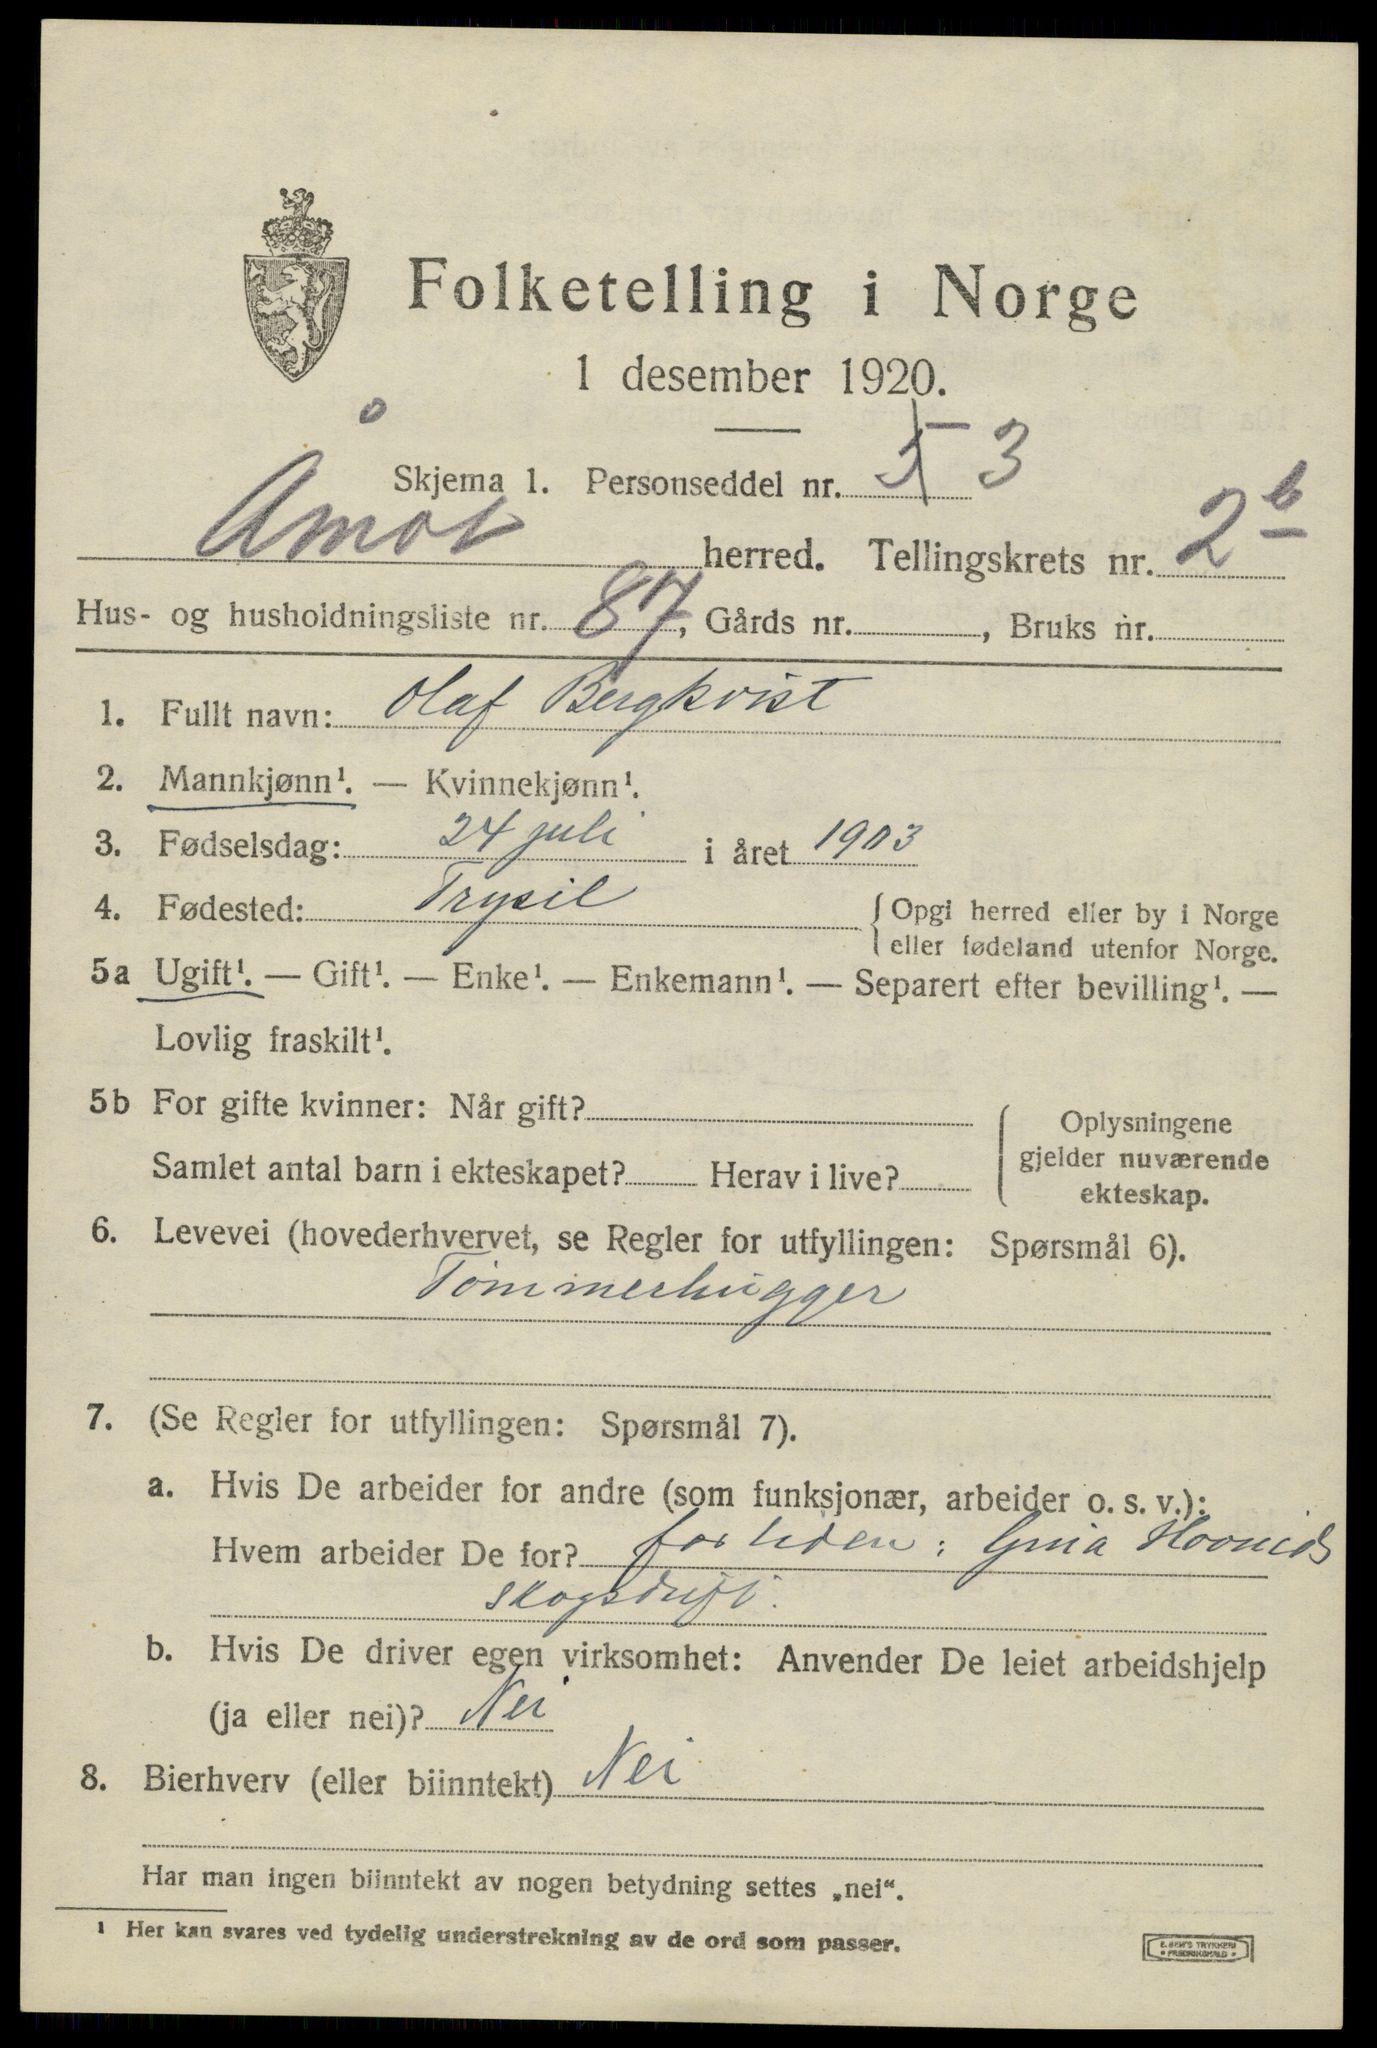 Folketelling i Norge
1 desember 1920.
Skjema 1. Personseddel nr. 5 3
Åmot herred. Tellingskrets nr. 2b
Hus- og husholdningsliste nr. 87, Gårds nr. , Bruks nr.
1. Fullt navn: Olaf Bergkvist
2. Mannkjønn¹. — Kvinnekjønn¹.
3. Fødselsdag: 24 juli i året 1903
4. Fødested: Trysil {Opgi herred eller by i Norge
eller fødeland utenfor Norge.
5a Ugift¹. — Gift¹. — Enke¹. — Enkemann¹. — Separert efter bevilling¹. —
Lovlig fraskilt¹.
5b For gifte kvinner: Når gift?
Samlet antal barn i ekteskapet? Herav i live?
Oplysningene
gjelder nuværende
ekteskap.
6. Levevei (hovederhvervet, se Regler for utfyllingen: Spørsmål 6).
Tømmerhugger
7. (Se Regler for utfyllingen: Spørsmål 7).
a. Hvis De arbeider for andre (som funksjonær, arbeider o. s. v.):
Hvem arbeider De for? for tiden:
skogsdrift.
b. Hvis De driver egen virksomhet: Anvender De leiet arbeidshjelp
(ja eller nei)? Nei
8. Bierhverv (eller biinntekt) Nei
Har man ingen biinntekt av nogen betydning settes „nei“.
¹ Her kan svares ved tydelig understrekning av de ord som passer.
E. SEM'S TRYKKERI
• FREDRIKSHALD •